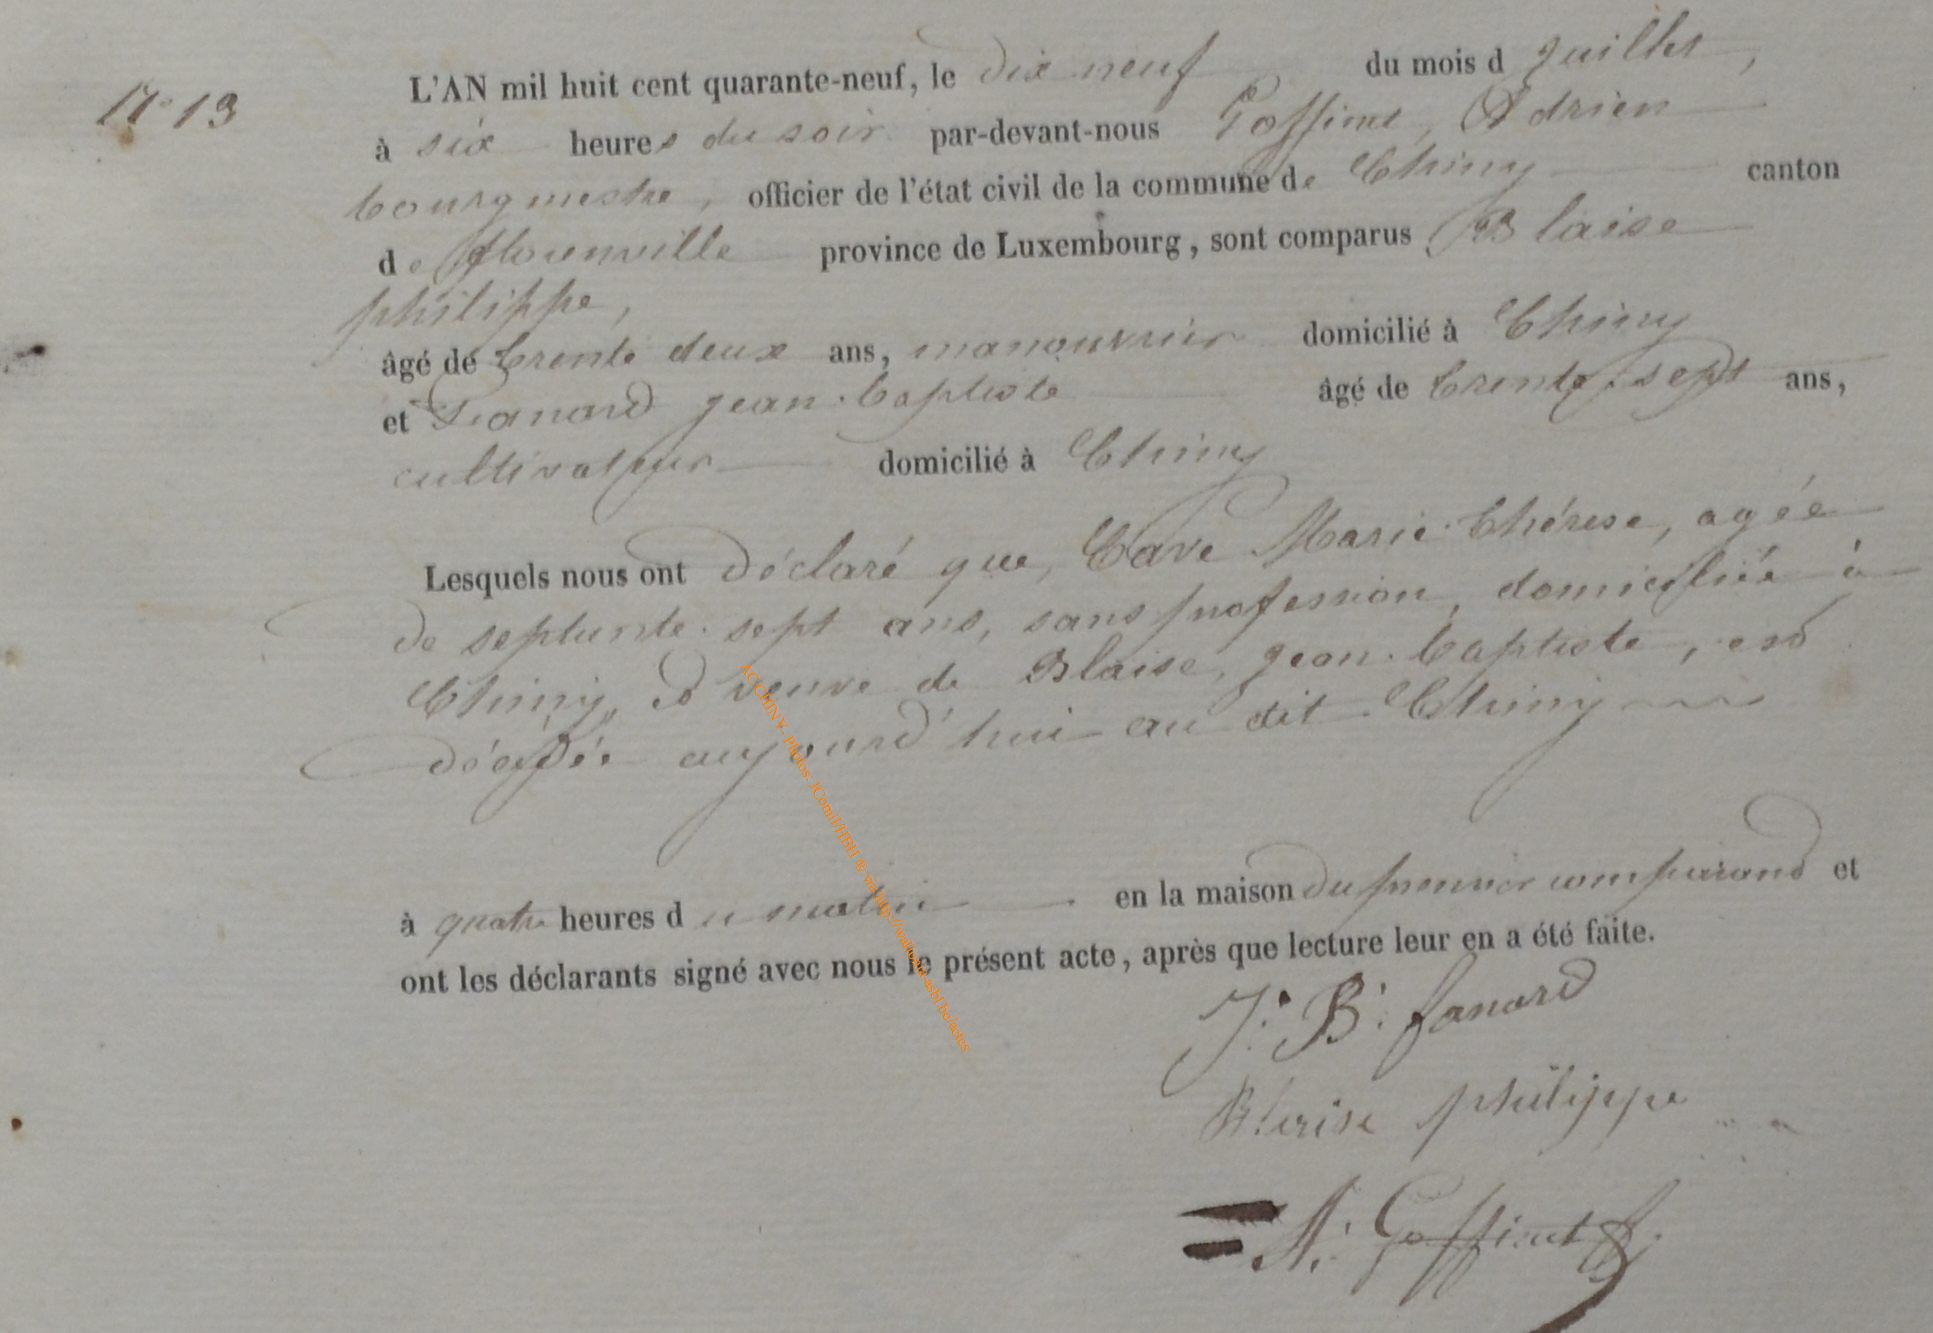 N° 13
L'AN mil huit cent quarante-neuf, le dix neuf du mois d juillet,
à six heures du soir par-devant-nous Goffinet, Adrien
bourgmestre, officier de l'état civil de la commune de Chiny canton
de florenville province de Luxembourg, sont comparus Blaise
philippe,
âgé de trente deux ans, manouvrier domicilié à Chiny
et Lanard jean-baptiste âgé de trente-sept ans,
cultivateur domicilié à Chiny
Lesquels nous ont déclaré que, Cave Marie-thérese, agée
de septante-sept ans, sans profession, domiciliée à
Chiny, et veuve de Blaise, jean-baptiste, est
décédée aujourd'hui au dit Chiny
à quatre heures du matin en la maison du premier comparand et
ont les déclarants signé avec nous le présent acte, après que lecture leur en a été faite.
J: B: Lanard
Blaise philippe
A: Goffinet